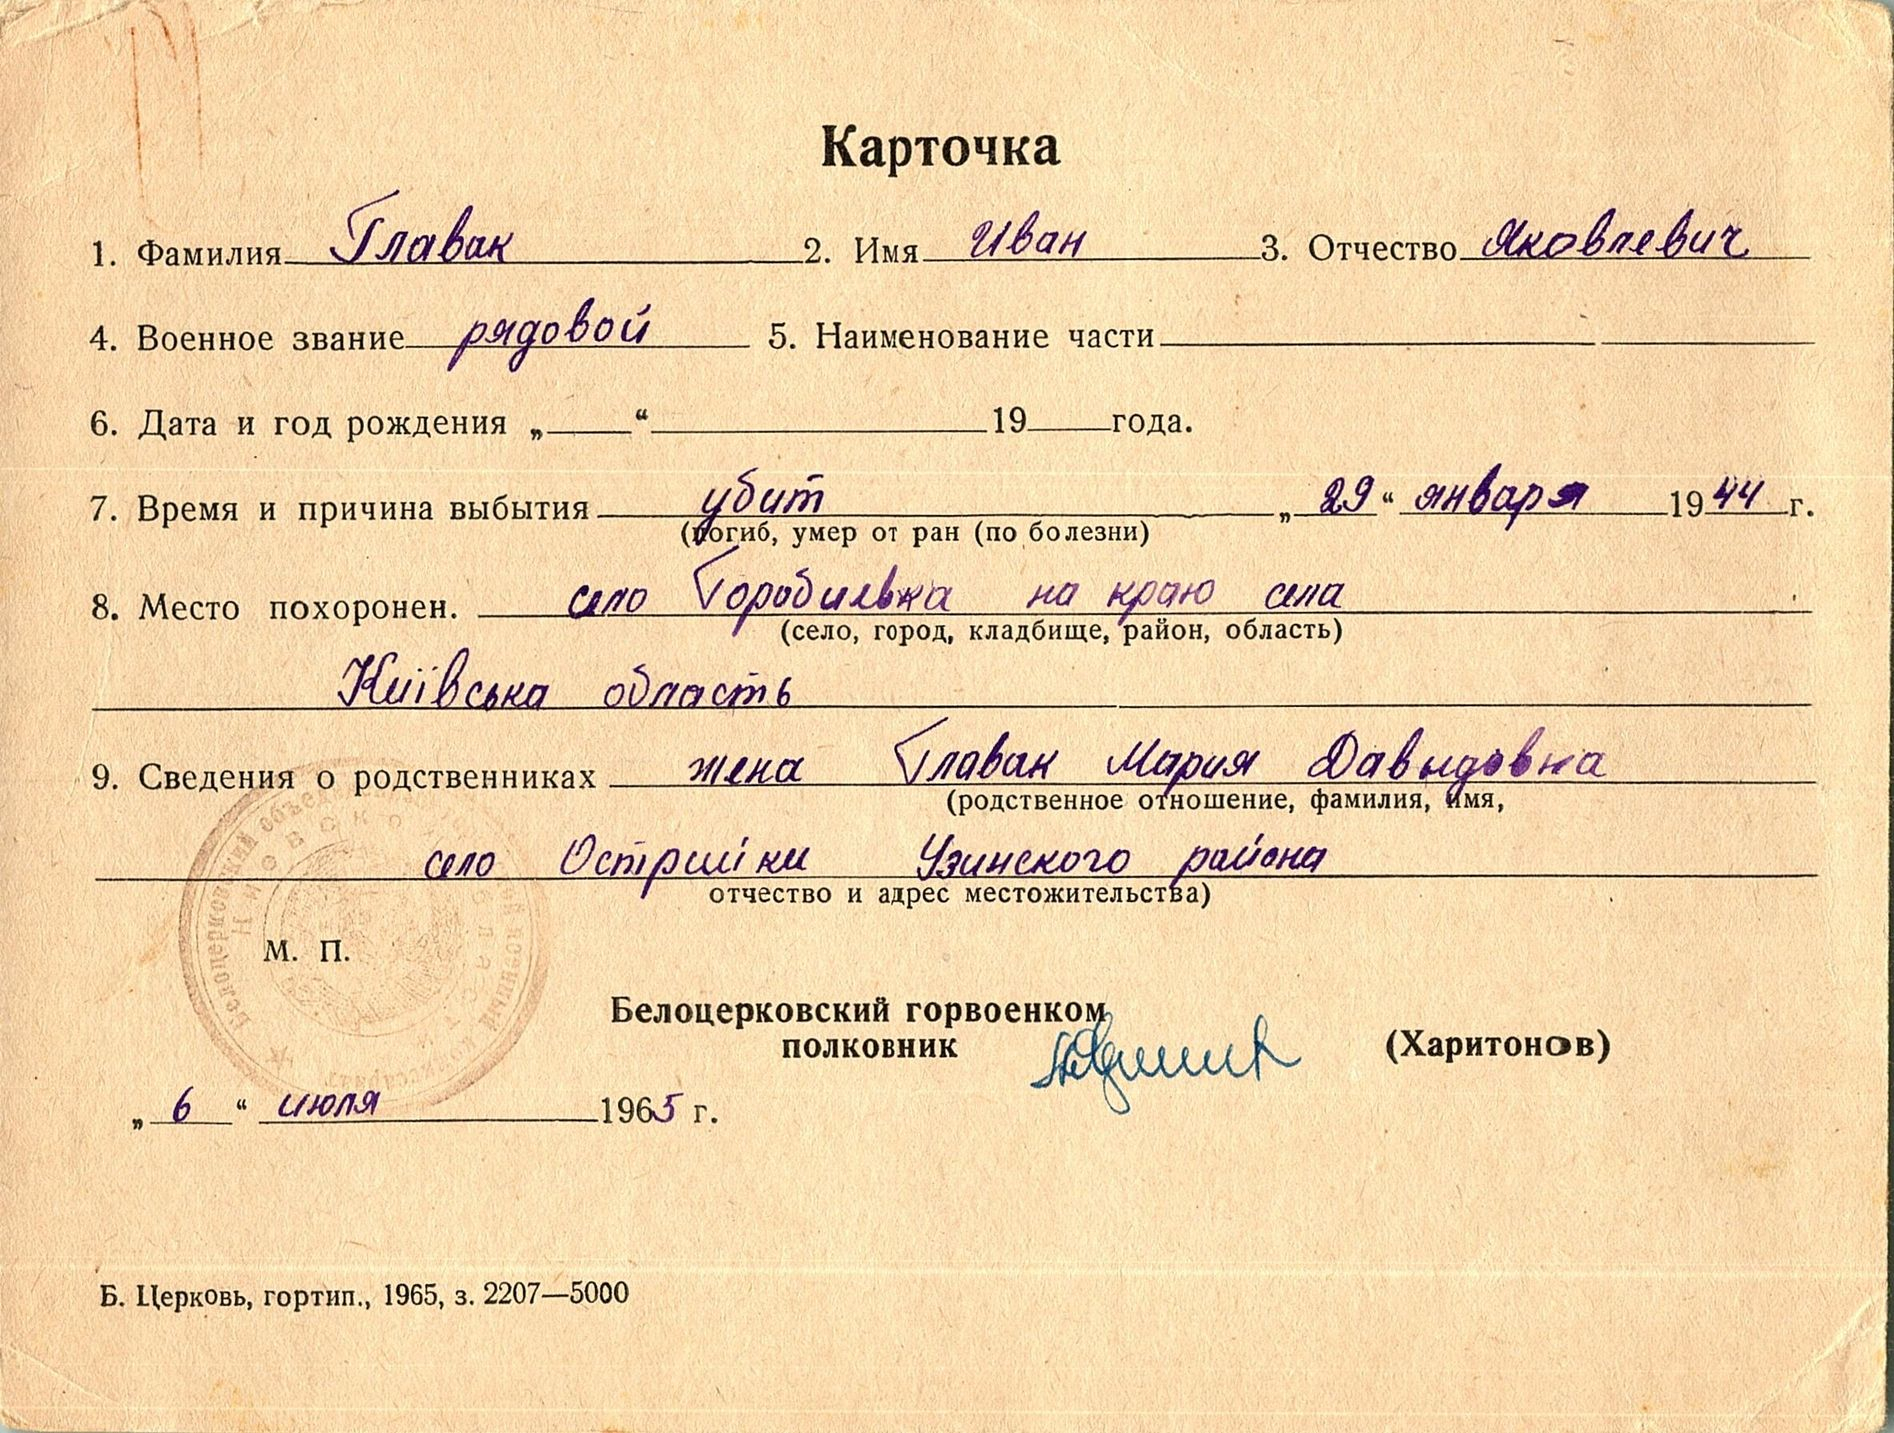 Карточка
1. Фамилия Главак 2. Имя Иван 3. Отчество Яковлевич
4. Военное звание рядовой 5. Наименование части
6. Дата и год рождения „ “ 19 года.
7. Время и причина выбытия убит „ 29 “ января 1944 г.
(погиб, умер от ран (по болезни)
8. Место похоронен. село Горобиевка на краю села
(село, город, кладбище, район, область)
Київська область
9. Сведения о родственниках жена Главак Мария Давыдовна
(родственное отношение, фамилия, имя,
село Острийки Узинского района
отчество и адрес местожительства)
М. П.
Белоцерковский горвоенком
полковник (Харитонов)
„ 6 “ июля 1965 г.
Б. Церковь, гортип., 1965, з. 2207—5000